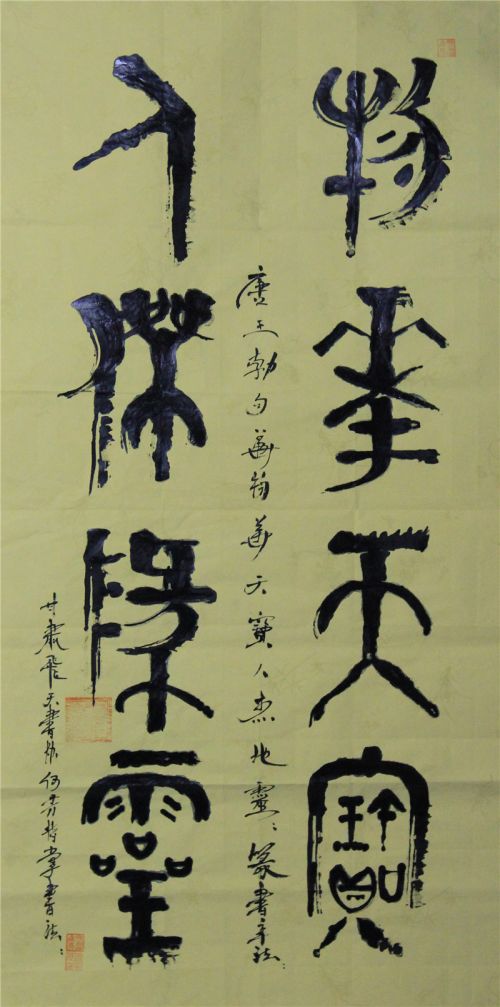 物華天寶
唐王勃句物華天寶人杰地靈：篆書章法：
人傑地靈
甘肅飛天書何掌書法：